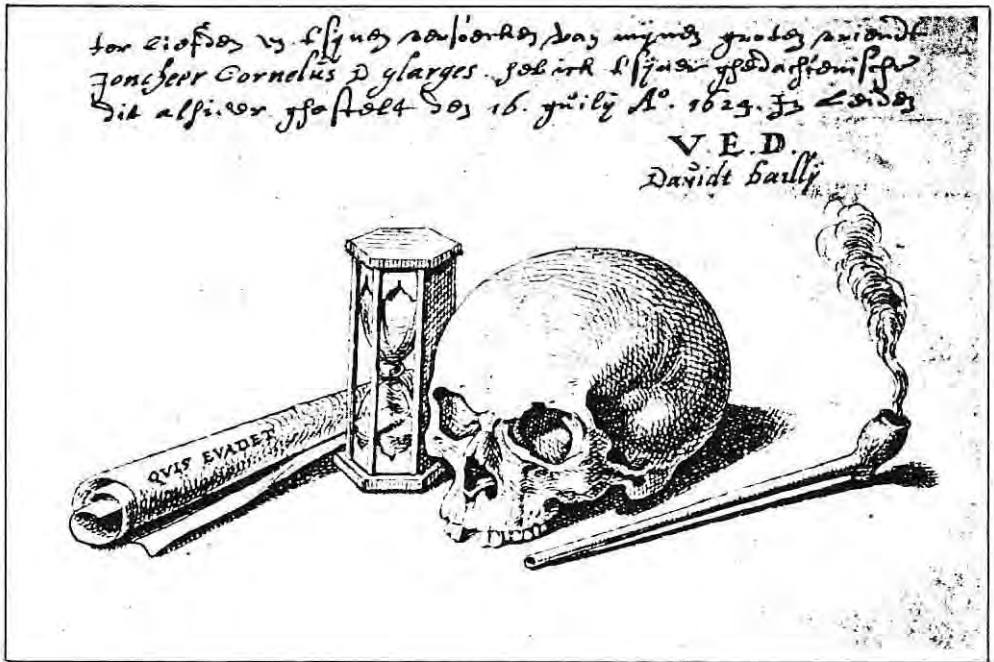 ter liefden en t'sijnen versoecken van mijnen grooten vriendt
Joncheer Cornelius D glarges heb ick t'sijner ghedachtenisse
dit alhier ghestelt den 16. guilij A°. 1624. In Leiden
V. E. D.
Davidt bailly
QVIS EVADET